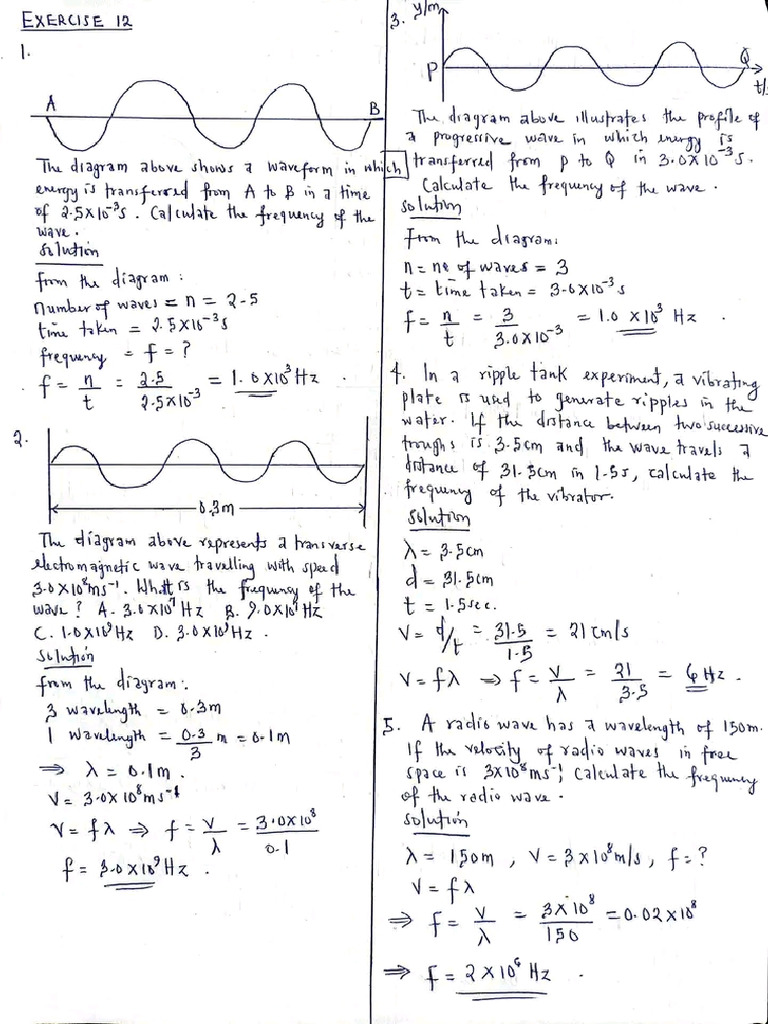 EXERCISE 12
1.
A
B
The diagram above shows a waveform in which
energy is transferred from A to B in a time
of 2.5X10⁻³s. Calculate the frequency of the
wave.
solution
from the diagram :
number of waves = n = 2.5
time taken = 2.5X10⁻³s
frequency = f = ?
f = n/t = 2.5/2.5X10⁻³ = 1.0X10³Hz .
2.
0.3m
The diagram above represents a transverse
electromagnetic wave travelling with speed
3.0X10⁸ms⁻¹. What is the frequency of the
wave? A. 3.0X10⁷Hz B. 9.0X10⁹Hz
C. 1.0X10⁹Hz D. 3.0X10⁹Hz .
solution
from the diagram:
3 wavelength = 0.3m
1 wavelength = 0.3/3 m = 0.1m
⇒ λ = 0.1m.
V = 3.0X10⁸ms⁻¹
V = fλ ⇒ f = V/λ = 3.0X10⁸/0.1
f = 3.0X10⁹Hz .
3.
y/m
P
Q
t/s
The diagram above illustrates the profile of
a progressive wave in which energy is
transferred from P to Q in 3.0X10⁻³s.
Calculate the frequency of the wave.
solution
From the diagram:
n = no of waves = 3
t = time taken = 3.0X10⁻³s
f = n/t = 3/3.0X10⁻³ = 1.0 X10³ Hz .
4. In a ripple tank experiment, a vibrating
plate is used to generate ripples in the
water. If the distance between two successive
troughs is 3.5cm and the wave travels a
distance of 31.5cm in 1.5s, calculate the
frequency of the vibrator.
solution
λ = 3.5cm
d = 31.5cm
t = 1.5sec.
V = d/t = 31.5/1.5 = 21cm/s
V = fλ ⇒ f = V/λ = 21/3.5 = 6Hz .
5. A radio wave has a wavelength of 150m.
If the velocity of radio waves in free
space is 3X10⁸ms⁻¹; Calculate the frequency
of the radio wave.
solution
λ = 150m , V = 3X10⁸m/s, f = ?
V = fλ
⇒ f = V/λ = 3X10⁸/150 = 0.02X10⁸
⇒ f = 2X10⁶ Hz .